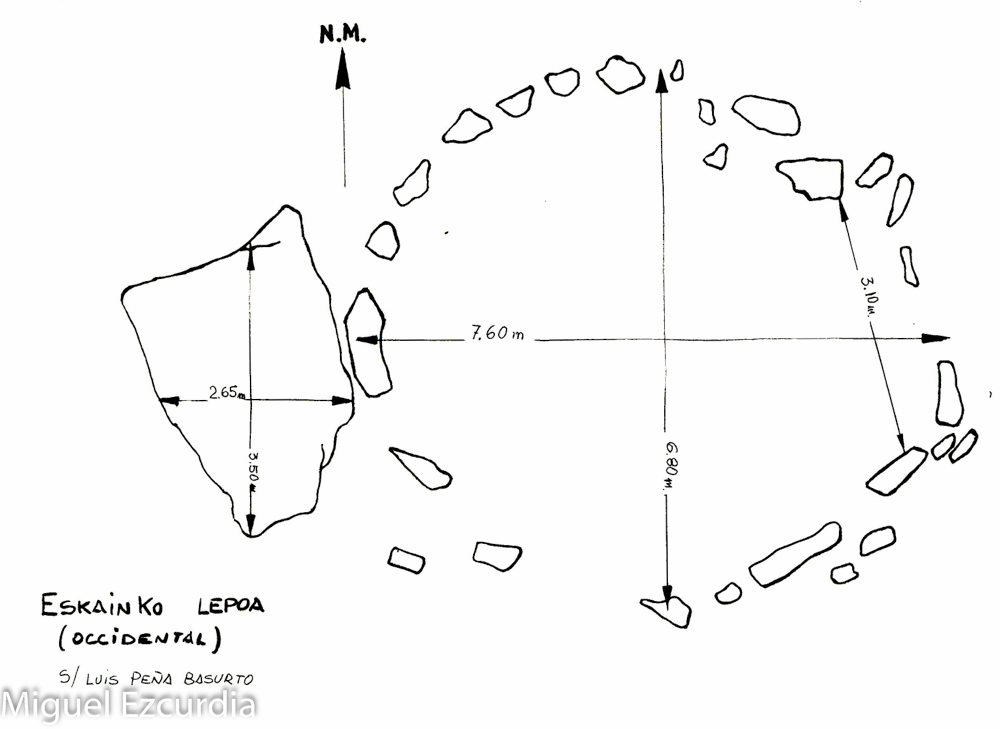 N.M.
7.60 m
3.10 m.
2.65 m
3.50 m
6.80 m.
ESKAINKO LEPOA
(OCCIDENTAL)
S/ LUIS PEÑA BASURTO
Miguel Ezcurdia